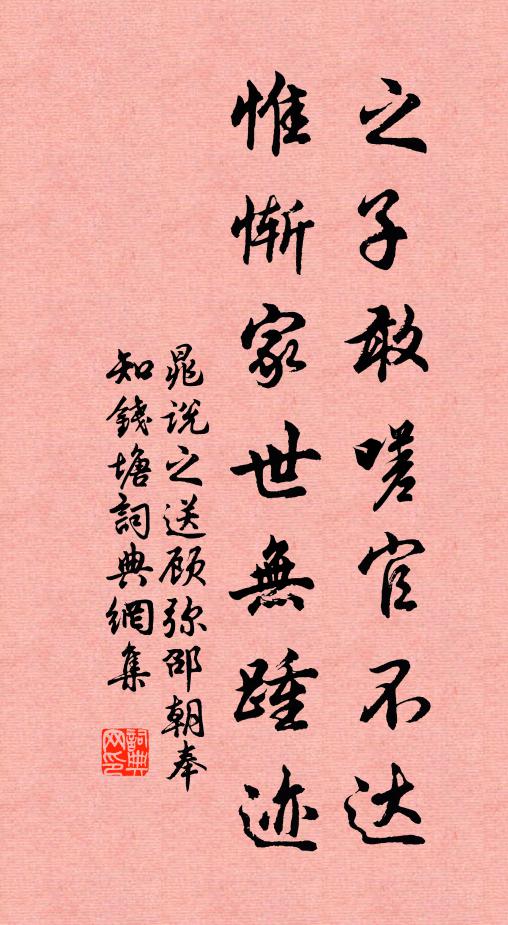 之子敢嗟官不达
惟惭家世無踵迹
晁说之送顾弥邵朝奉
知錢塘詞典網集
詞典
网印